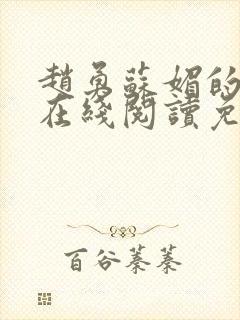 趙勇蘇媚的
在綫閱讀免
百谷蓁蓁